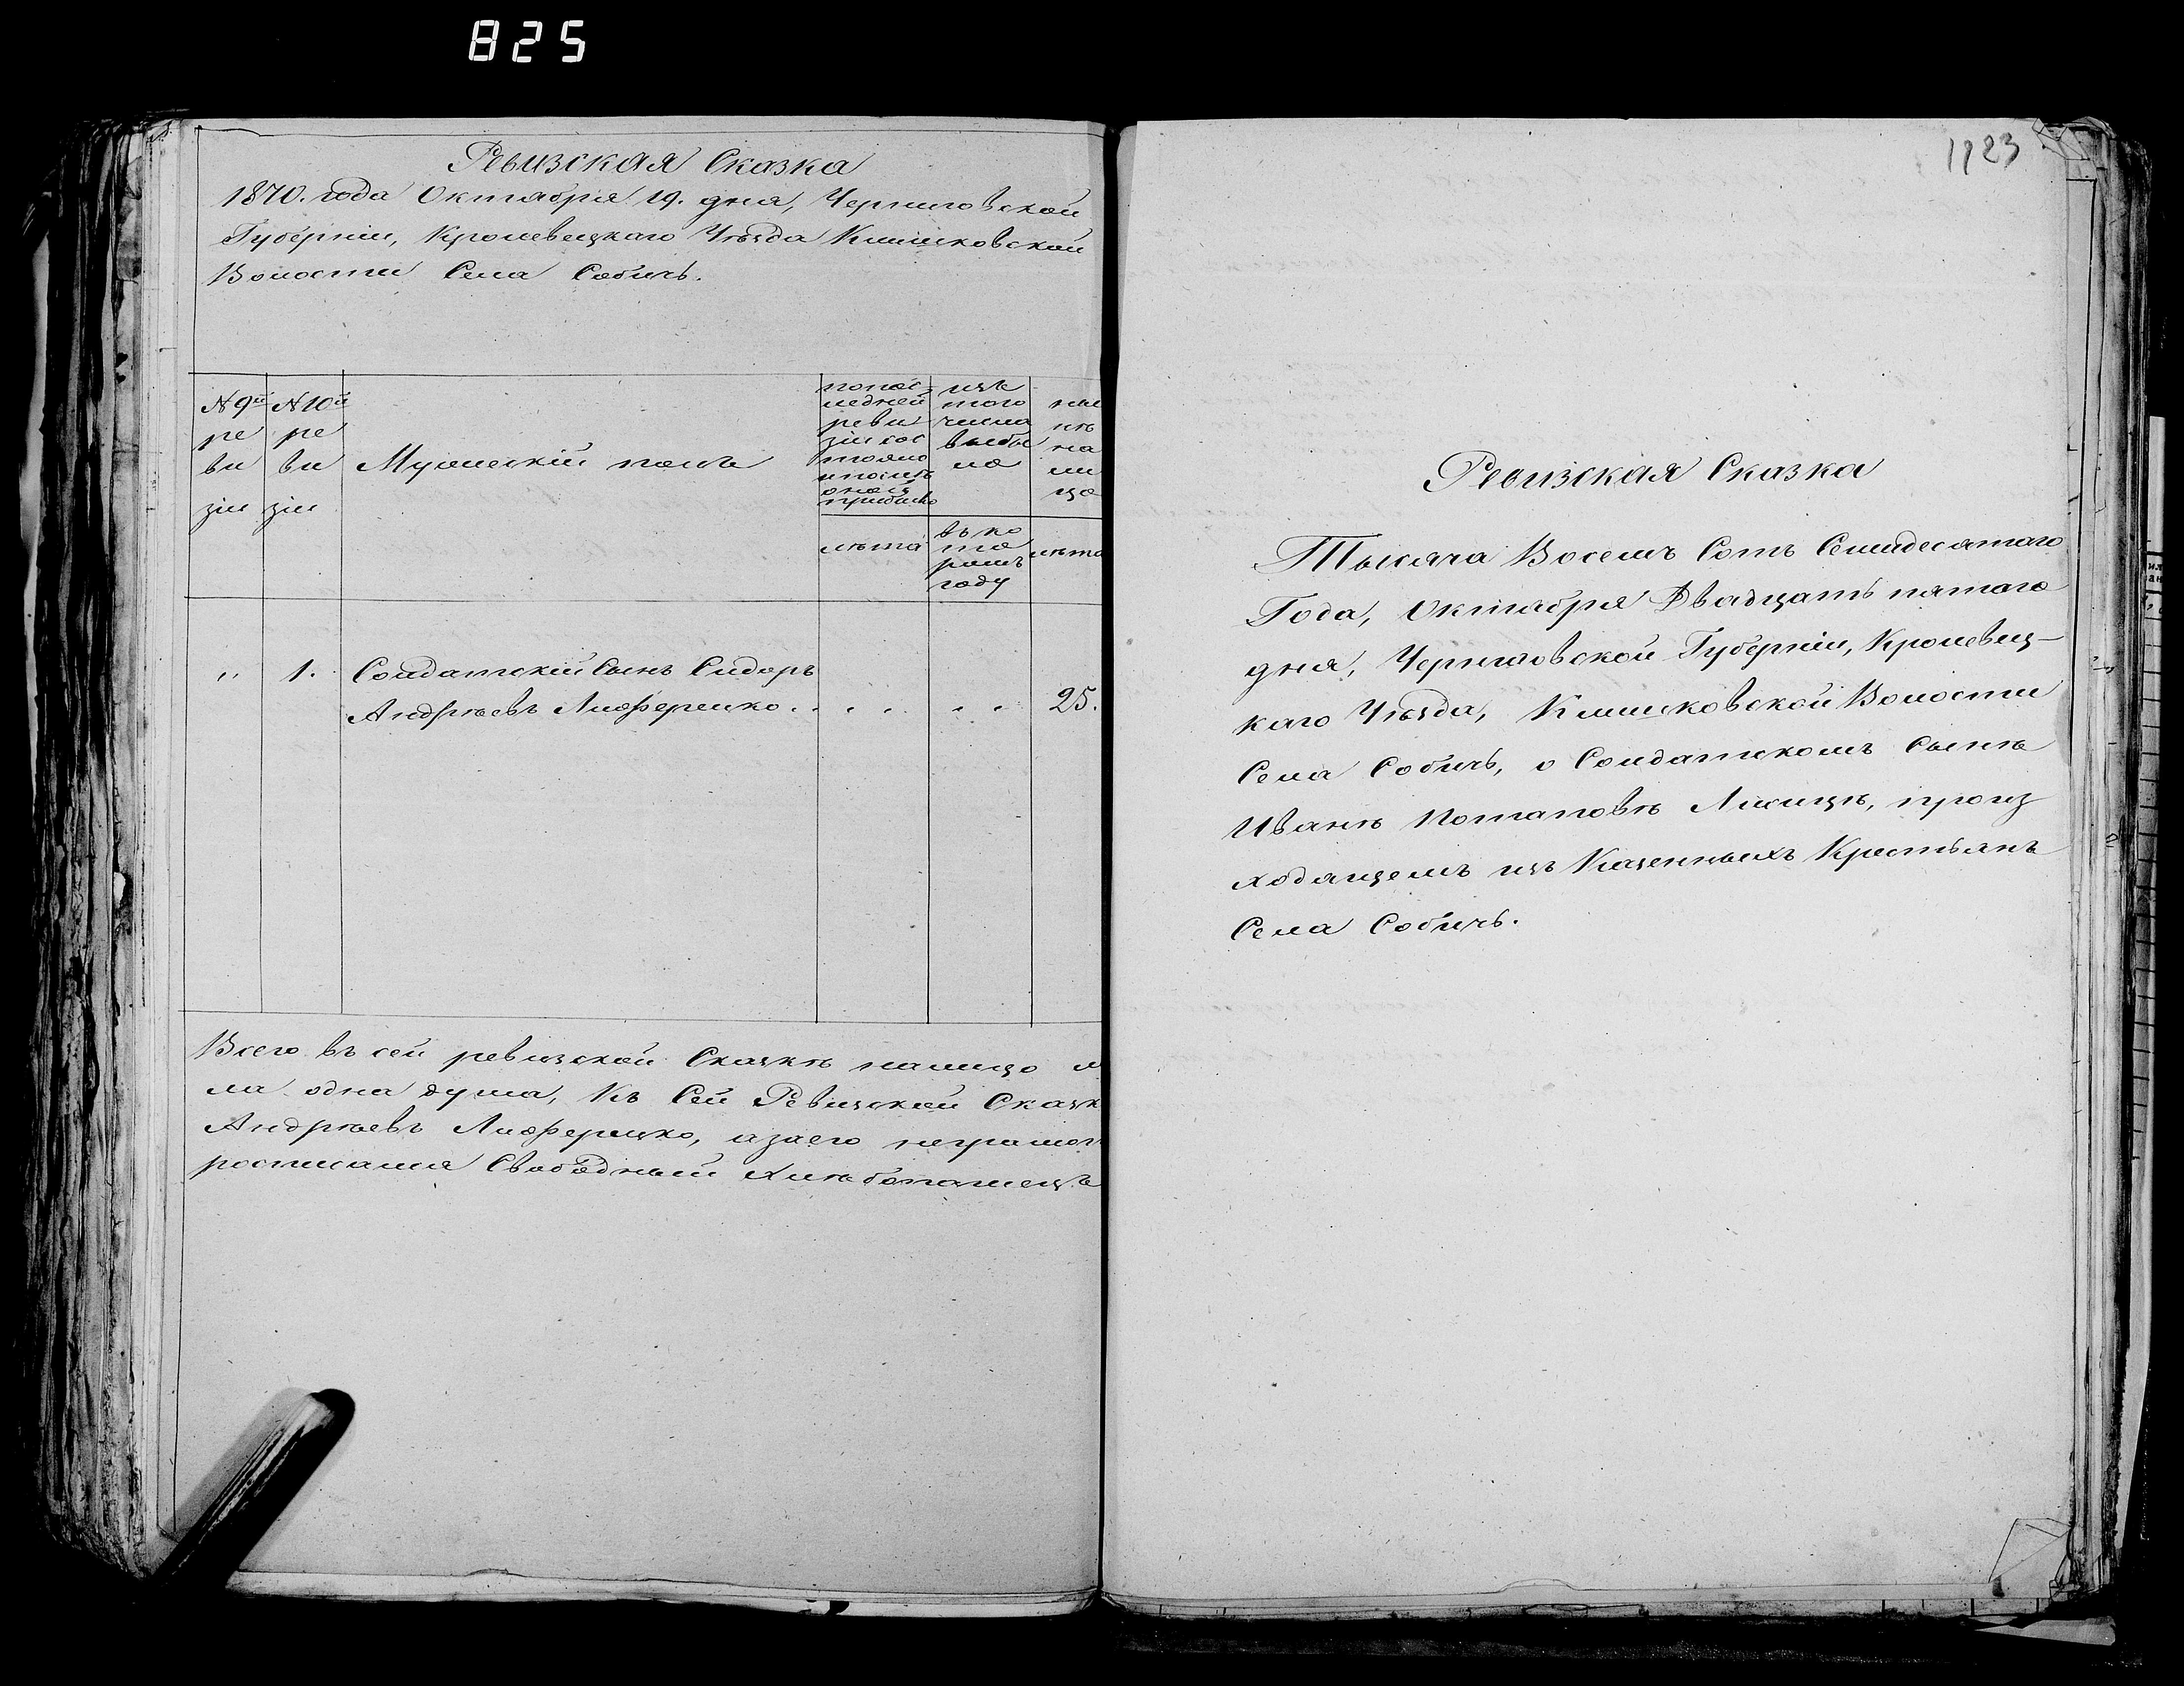 825
Ревизская Сказка
1870. года Октября 19. дня, Черниговской
Губерніи, Кролевецкаго Уѣзда Клишковской
Волости Села Собичь.
№ 9й
ре
ви
зіи
№ 10й
ре
ви
зіи
Мужескій полъ
попос-
ледней
реви
зіи сос
тояло
и послѣ
оной
прибыло
лѣта
изъ
того
числа
выбы
ло
въ ко
то
ромъ
году
ны
нѣ
на
ли
цо
лѣта
" 1. Солдатскій Сынъ Сидоръ
Андрѣевъ Лиоференко . . . . . . 25.
Всего въ сей ревизской Сказкѣ налицо
ла одна душа, Къ Сей Ревизской Сказк
Андрѣевъ Лиоференко, а за его неграмот
росписался Свободный Хлѣбопашецъ
1123
Ревизская Сказка
Тысяча Восемъ Сотъ Семидесятаго
Года, Октября Двадцать пятаго
дня, Черниговской Губерніи, Кролевец-
каго Уѣзда, Клишковской Волости
Села Собичь, о Солдатскомъ Сынѣ
Иванѣ Потаповѣ Лисицѣ, произ
ходящемъ изъ Казенныхъ Крестьянъ
Села Собичь.